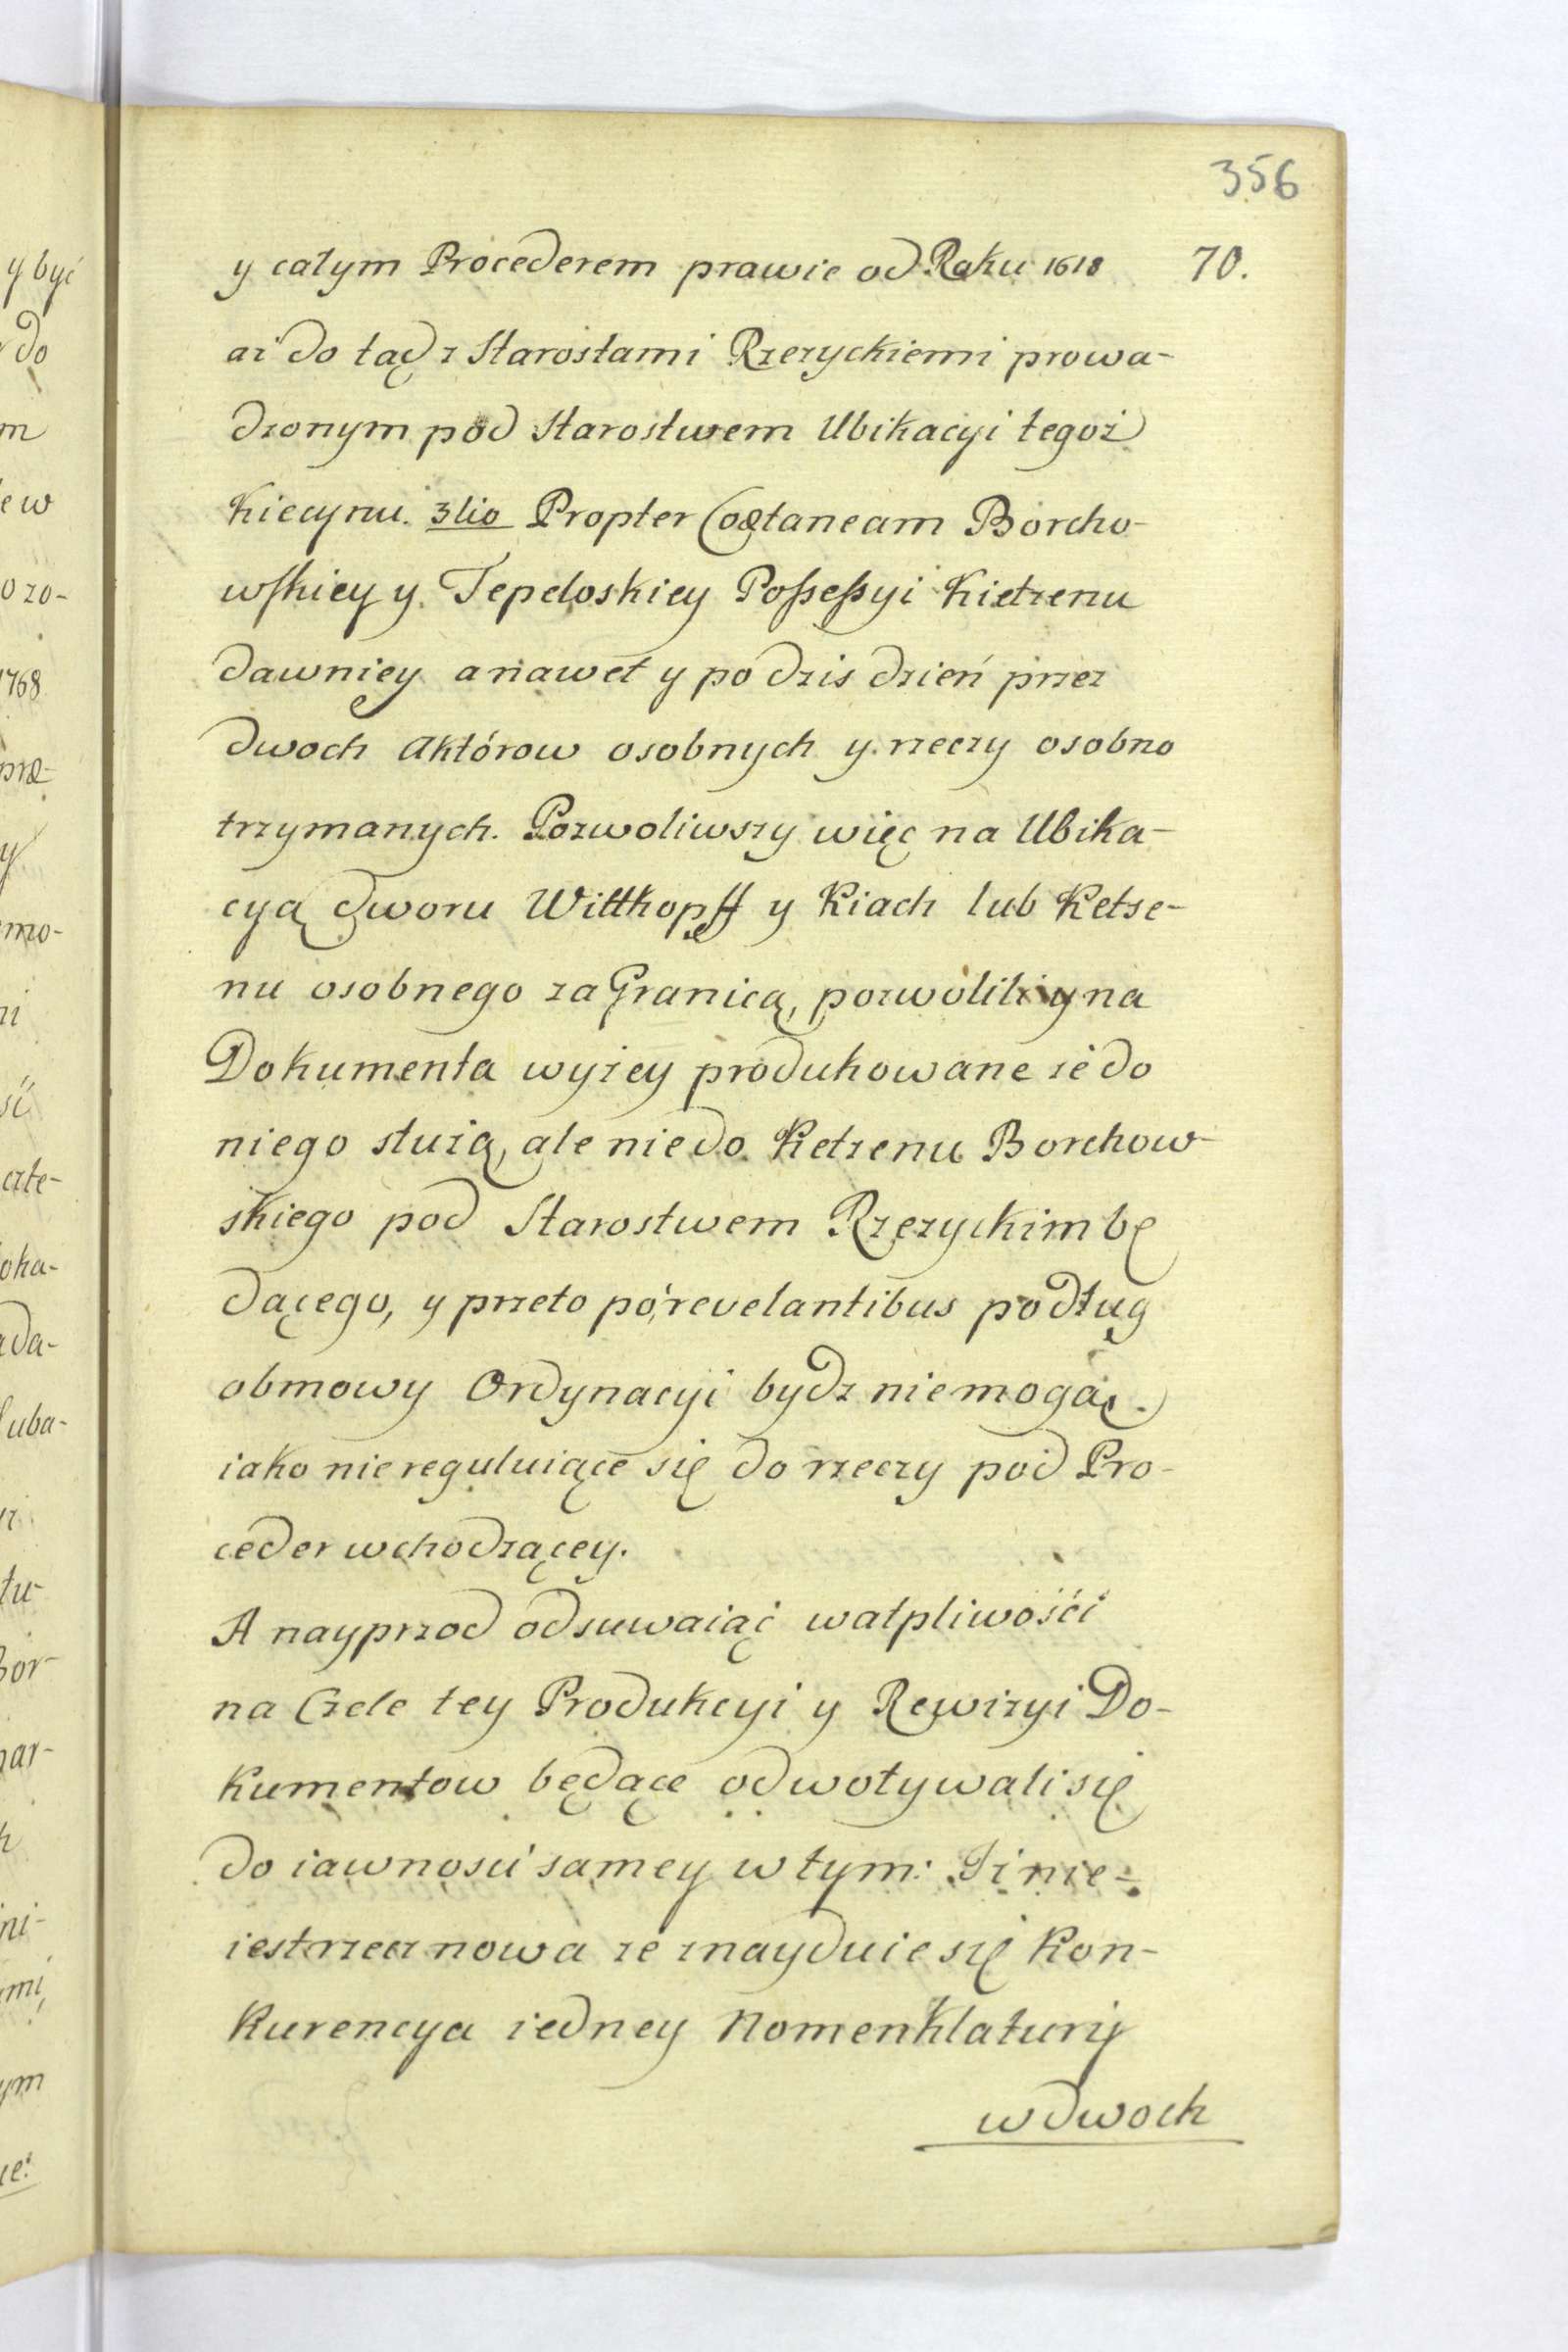 356
y całym Procederem prawie od Roku 1618 70.
aż do tąd z Starostami Rzezyckiemi prowa-
dzonym pod Starostwem Ubikacyi tegoż
Kiecynu. 3tio Propter Coætaneam Borcho-
wskiey y Tepeloskiey Possessyi Kietzenu
dawniey a nawet y po dzis dzień przez
dwoch Aktórow osobnych y rzeczy osobno
trzymanych. Pozwoliwszy więc na Ubika-
cyą dworu Wittkopff y Kiach lub Ketse-
nu osobnego za Granicą, pozwolili y na
Dokumenta wyżey produkowane że do
niego służą, ale nie do Ketzenu Borchow-
skiego pod Starostwem Rzezyckim bę
dącego, y przeto po revelantibus podług
obmowy Ordynacyi bydz niemogą.
iako nie reguluiące się do rzeczy pod Pro-
ceder wchodzącey.
A nayprzod odsuwaiąc watpliwości
na Czele tey Produkcyi y Rewizyi Do-
kumentow będące odwoływali się
do iawnosci samey w tym: Iż nie-
iest rzecz nowa że znayduie się Kon-
kurencya iedney Nomenklatury
w dwoch
y być
do
m
e w
0 zo-
1768
præ-
y
mo-
ni
ść
czte-
oka-
ada-
uba-
tu-
Bor-
par-
ni-
mi,
ym
ie: